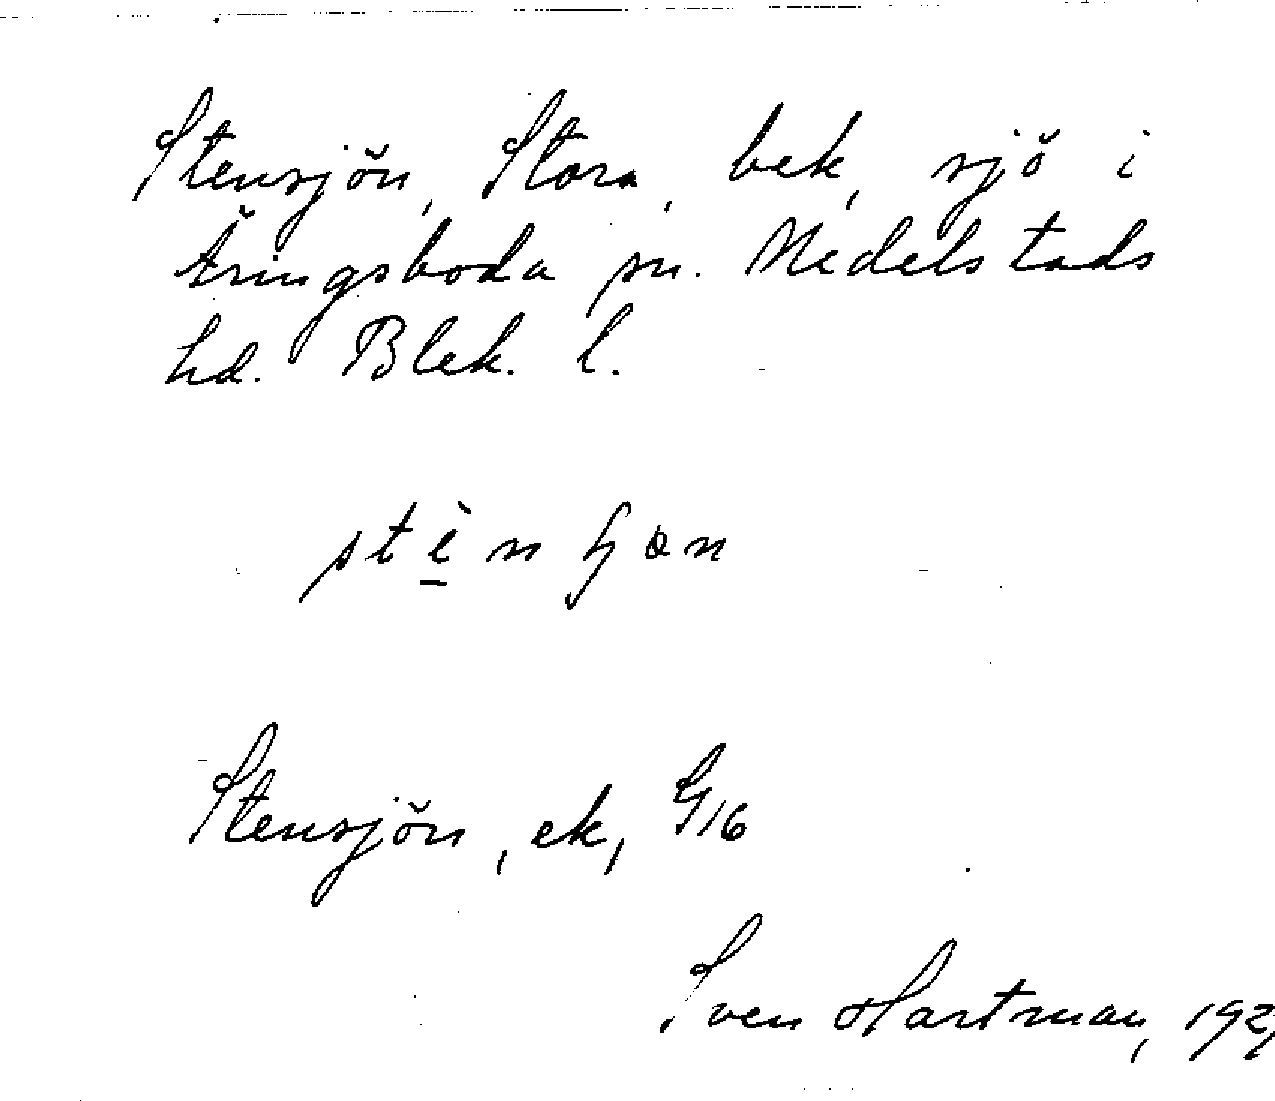 Stensjön, Stora, bek, sjö i
Åringsboda sn. Medelstads
hd. Blek. l.
Stensjön, ek, G16
Sven Hartman, 192